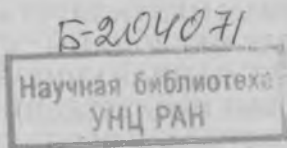 Б-204071
Научная библиотека
УНЦ РАН